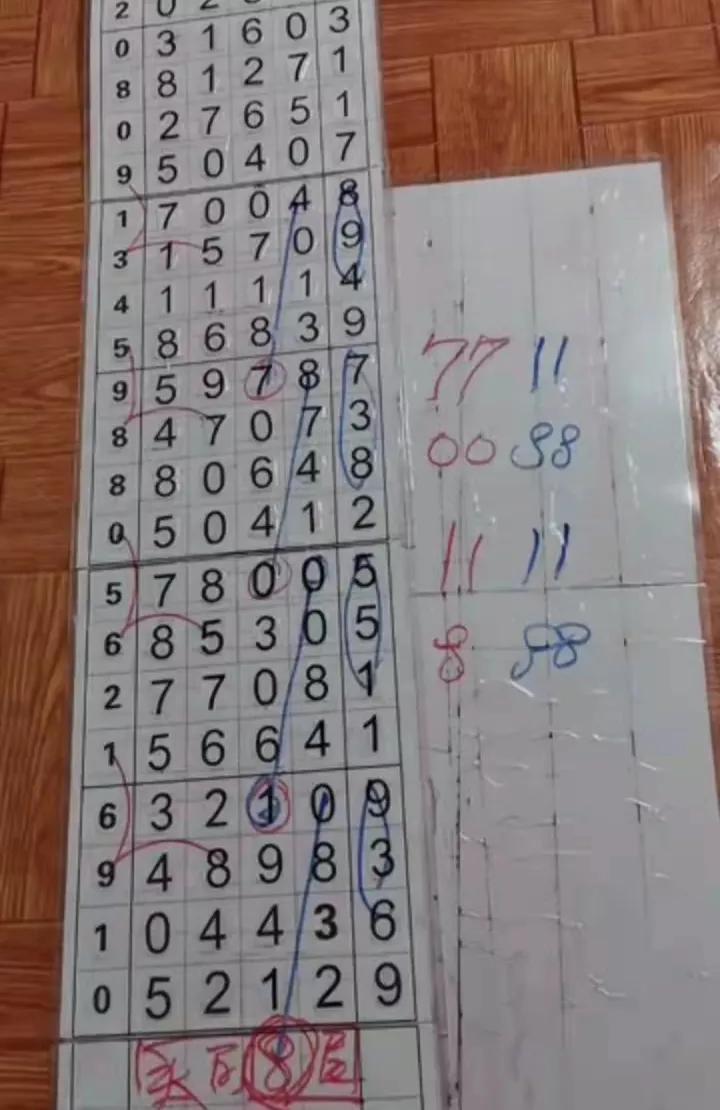 2 0 2
0 3 1 6 0 3
8 8 1 2 7 1
0 2 7 6 5 1
9 5 0 4 0 7
1 7 0 0 4 8
3 1 5 7 0 9
4 1 1 1 1 4
5 8 6 8 3 9
9 5 9 7 8 7
77 11
8 4 7 0 7 3
00 88
8 8 0 6 4 8
0 5 0 4 1 2
11 11
5 7 8 0 0 5
6 8 5 3 0 5
8 88
2 7 7 0 8 1
1 5 6 6 4 1
6 3 2 1 0 9
9 4 8 9 8 3
1 0 4 4 3 6
0 5 2 1 2 9
8